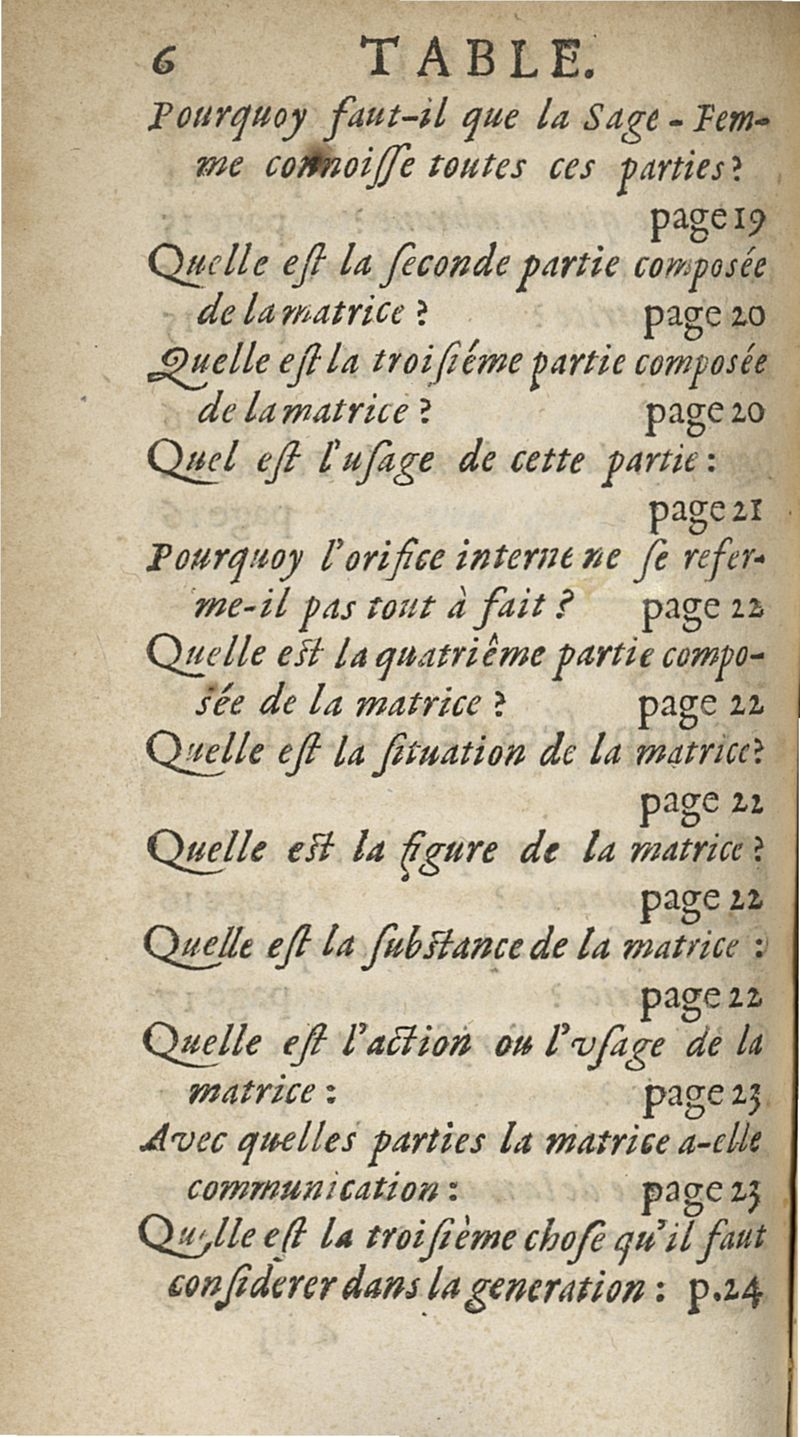 6 TABLE.
Pourquoy faut-il que la Sage-Fem-
me connoiſſe toutes ces parties?
page 19
Quelle eſt la ſeconde partie composée
de la matrice ? page 20
Quelle eſt la troiſiéme partie composée
de la matrice ? page 20
Quel eſt l'uſage de cette partie :
page 21
Pourquoy l'orifice interne ne ſe refer-
me-il pas tout à fait ? page 22
Quelle est la quatriême partie compo-
sée de la matrice ? page 22
Quelle eſt la ſituation de la matrice?
page 22
Quelle est la figure de la matrice ?
page 22
Quelle eſt la ſubstance de la matrice :
page 22
Quelle eſt l'action ou l'vſage de la
matrice : page 23
Avec quelles parties la matrice a-elle
communication : page 23
Quelle eſt la troiſième choſe qu'il faut
conſiderer dans la generation : p.24